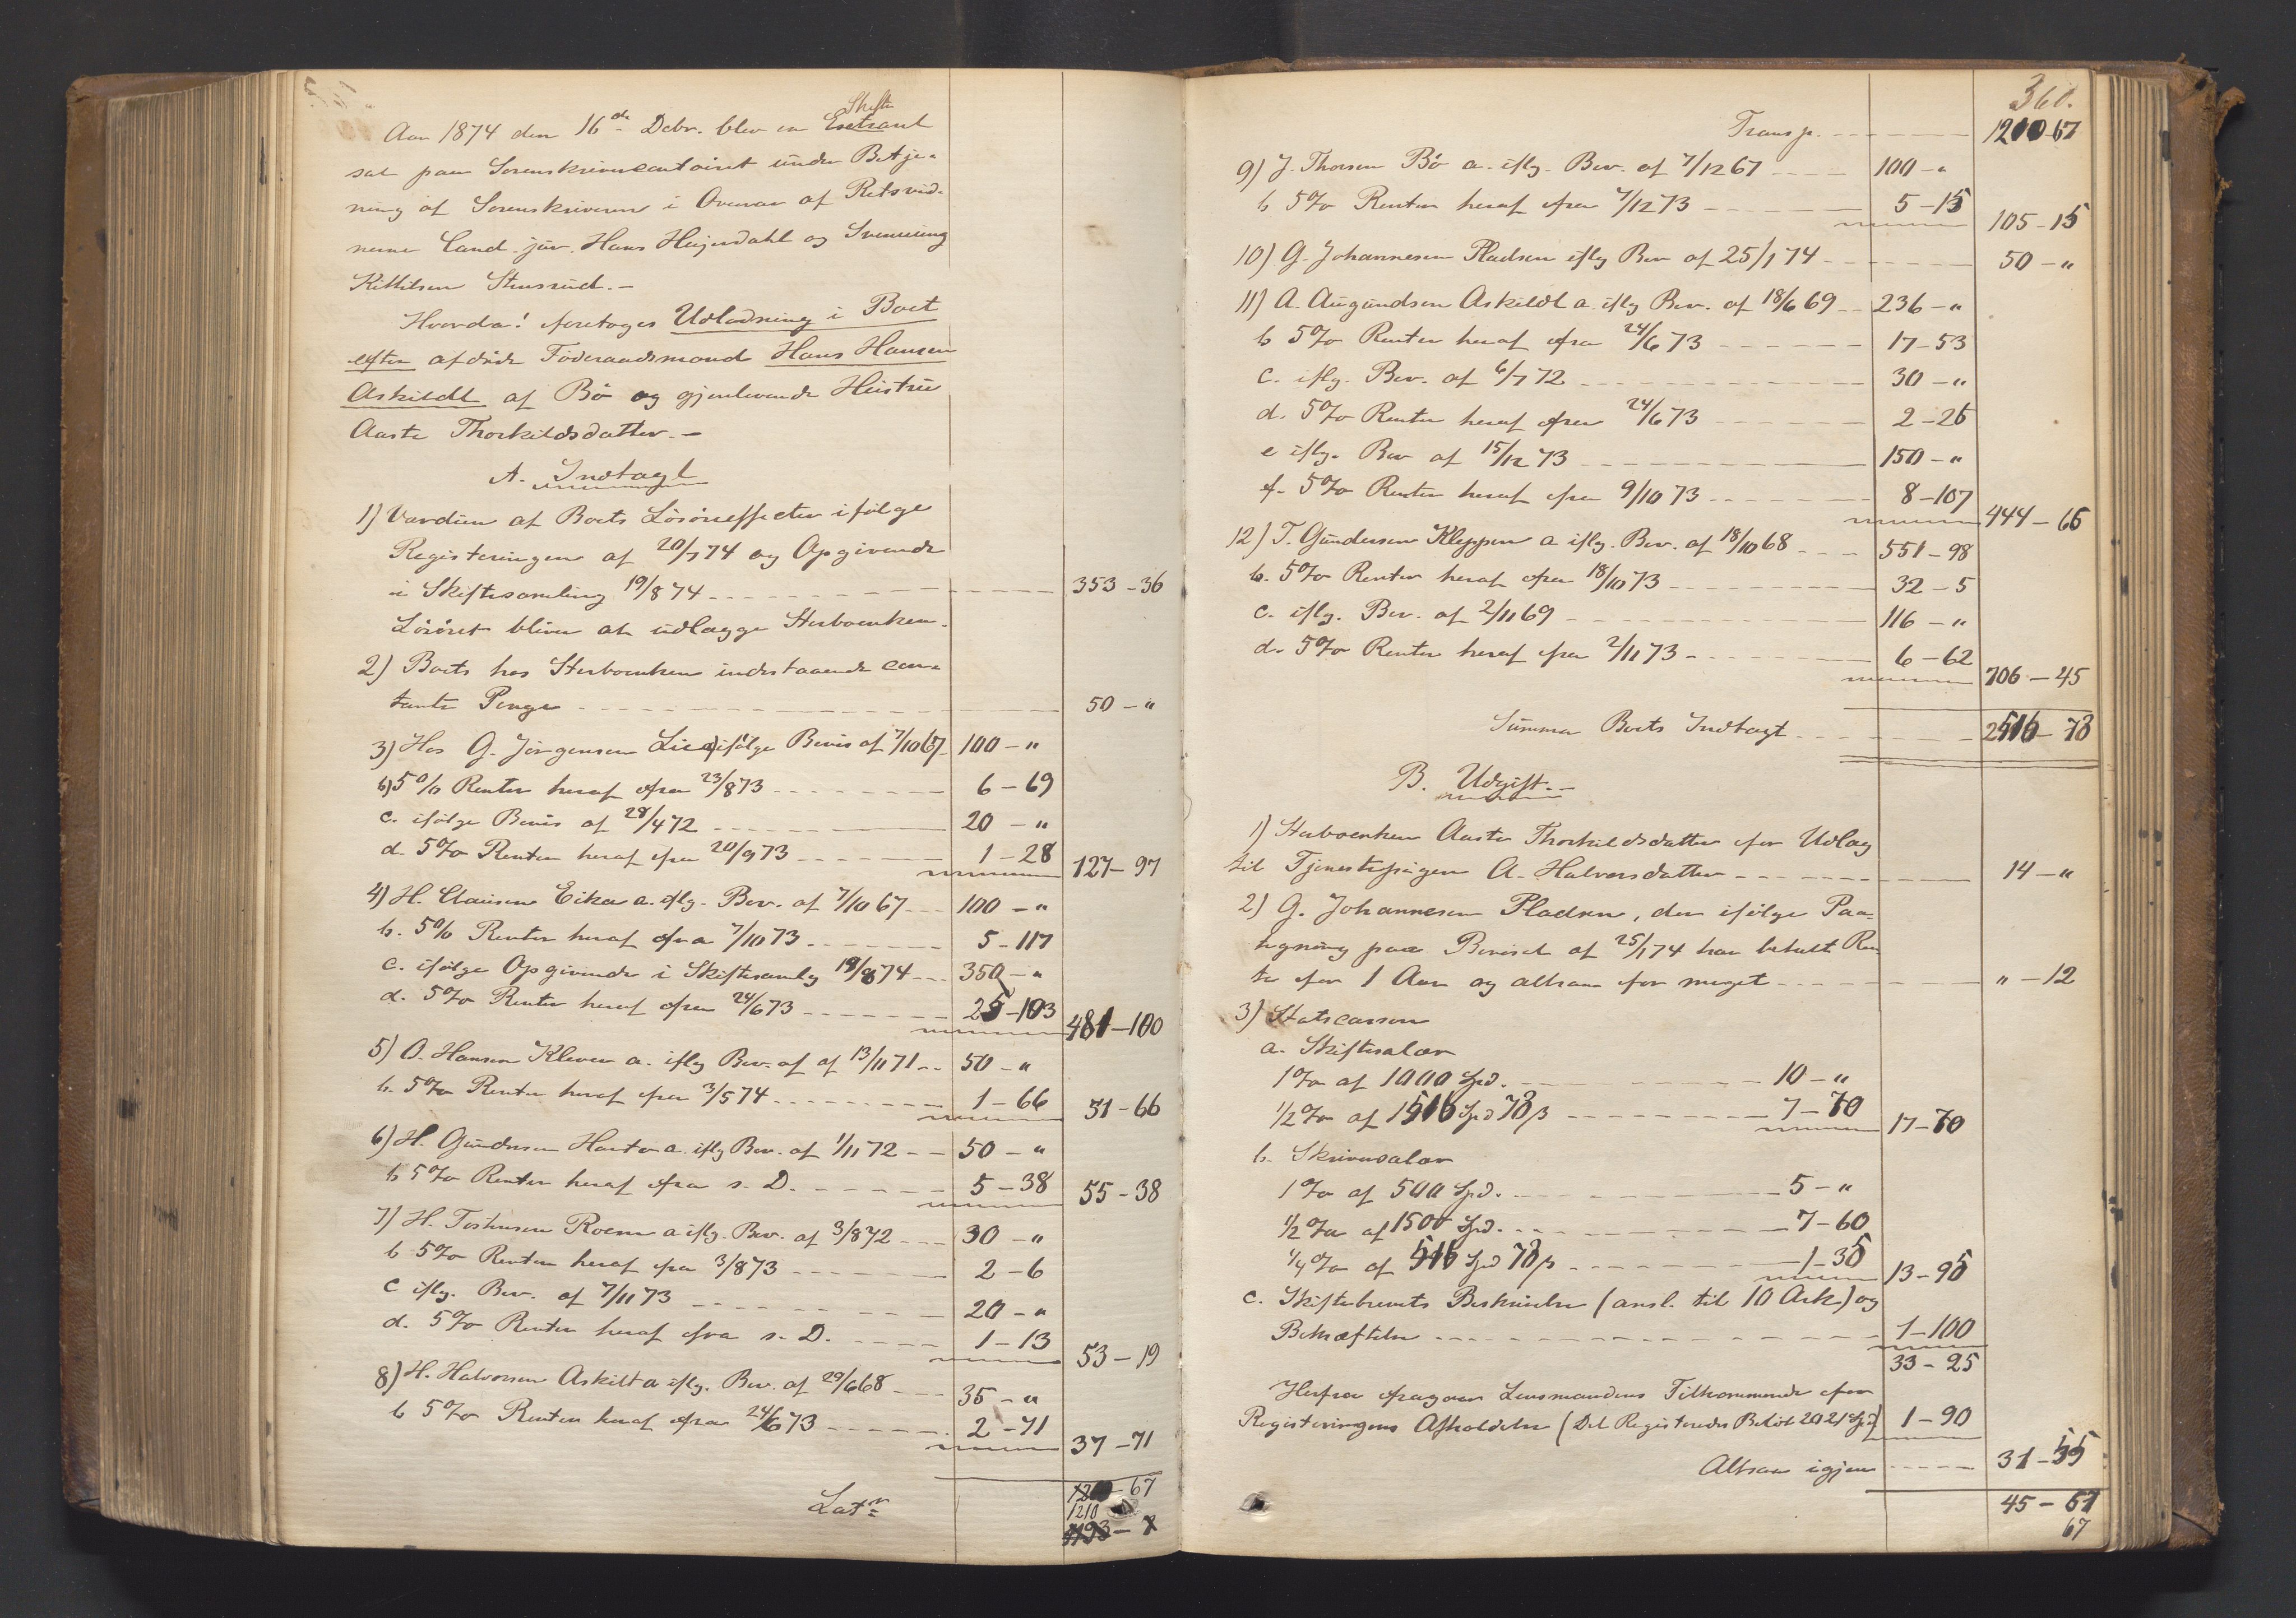 Aar 1874 den 16de Debr. blev en Extraret
Skifte
sat paa Sorenskrivercontoiret under Betje-
ning af Sorenskriveren i Overvær af Retsvid-
nerne Cand. jur. Hans Heyerdahl og Svennung
Kittilsen Stensrud. –
Hvorda! foretoges Udlodning i Boet
efter afdøde Føderaadsmand Hans Hansen
Askildt af Bö og gjenlevende Hustru
Aaste Thorkildsdatter. –
A. Indtægt
1) Værdien af Boets Lösöreeffecter ifølge
Registeringen af 20/7 74 og Opgivende
i Skiftesamling 19/8 74 353 – 36
Lösöret bliver at udlægge Sterboenken.
2) Boets hos Sterboenken indestaaende con-
tante Penge 50 – "
3) Hos G. Jörgensen Lie a) ifølge Bevis af 7/10 67 100 – "
b) 5 % Renter heraf fra 23/8 73 6 – 69
c. ifølge Bevis af 28/4 72 20 – "
d. 5 % Renter heraf fra 20/9 73 1 – 28 127 – 97
4) H. Clausen Eika a. iflg. Bev. af 7/10 67 100 – "
b. 5 % Renter heraf fra 7/10 73 5 – 117
c. ifølge Opgivende i Skiftesamlg 19/8 74 350 – "
d. 5 % Renter heraf fra 24/6 73 25 – 103 481 – 100
5) O. Hansen Kleven a. iflg Bev. af af 13/11 71 50 – "
b. 5 % Renter heraf fra 3/5 74 1 – 66 51 – 66
6) H. Gundersen Haatv a. iflg Bev. af 1/11 72 50 – "
b 5 % Renter heraf fra s. D. 5 – 38 55 – 38
7) H. Tostensen Roen a iflg. Bev. af 3/8 72 30 – "
b 5 % Renter heraf fra 3/8 73 2 – 6
c iflg. Bev. af 7/11 73 20 – "
d. 5 % Renter heraf fra s. D. 1 – 13 53 – 19
8) H. Halvorsen Askilt a iflg. Bev. af 29/6 68 35 – "
b 5 % Renter heraf fra 24/6 73 2 – 71 37 – 71
Latr 1210 – 67
1210
360.
Transp. 1210 – 67
9) J. Thorsen Bö a. iflg. Bev. af 7/12 67 100 – "
b 5 % Renter heraf fra 7/12 73 5 – 15 105 – 15
10) G. Johannesen Pladsen iflg Bev af 25/1 74 50 – "
11) A. Augundsen Askildt a. iflg Bev. af 18/6 69 236 – "
b 5 % Renter heraf fra 24/6 73 17 – 53
c. iflg. Bev. af 6/7 72 30 – "
d. 5 % Renter heraf fra 24/6 73 2 – 26
e iflg. Bev af 15/12 73 150 – "
f. 5 % Renter heraf fra 9/10 73 8 – 107 444 – 66
12) T. Gundersen Kleppen a iflg. Bev. af 18/10 68 551 – 98
b. 5 % Renter heraf fra 18/10 73 32 – 5
c. iflg. Bev. af 2/11 69 116 – "
d. 5 % Renter heraf fra 2/11 73 6 – 62 706 – 45
Summa Boets Indtægt 2516 – 73
B. Udgift. –
1) Sterboenken Aaste Thorkildsdatter for Udlæg
til Tjenestepigen A. Halvorsdatter 14 – "
2) G. Johannesen Pladsen, der ifølge Paa-
tegning paa Beviset af 25/1 74 har betalt Ren-
te for 1 Aar og altsaa for meget " – 12
3) Statscassen
a. Skiftesalær
1 % af 1000 Spd. 10 – "
1/2 % af 1516 Spd 73 β 7 – 70 17 – 70
b. Skriversalær
1 % af 500 Spd. 5 – "
1/2 % af 1500 Spd. 7 – 60
1/4 % af 516 Spd 73 β 1 – 35 13 – 95
c. Skiftebrevets Beskrivelse (ansl. til 10 Ark) og
Bekræftelse 1 – 100
33 – 25
Herfra fragaar Lensmandens Tilkommende for
Registeringens Afholdelse (Det Registerede Beløb 2021 Spd) 1 – 90
Altsaa igjen 31 – 55
45 – 67
67